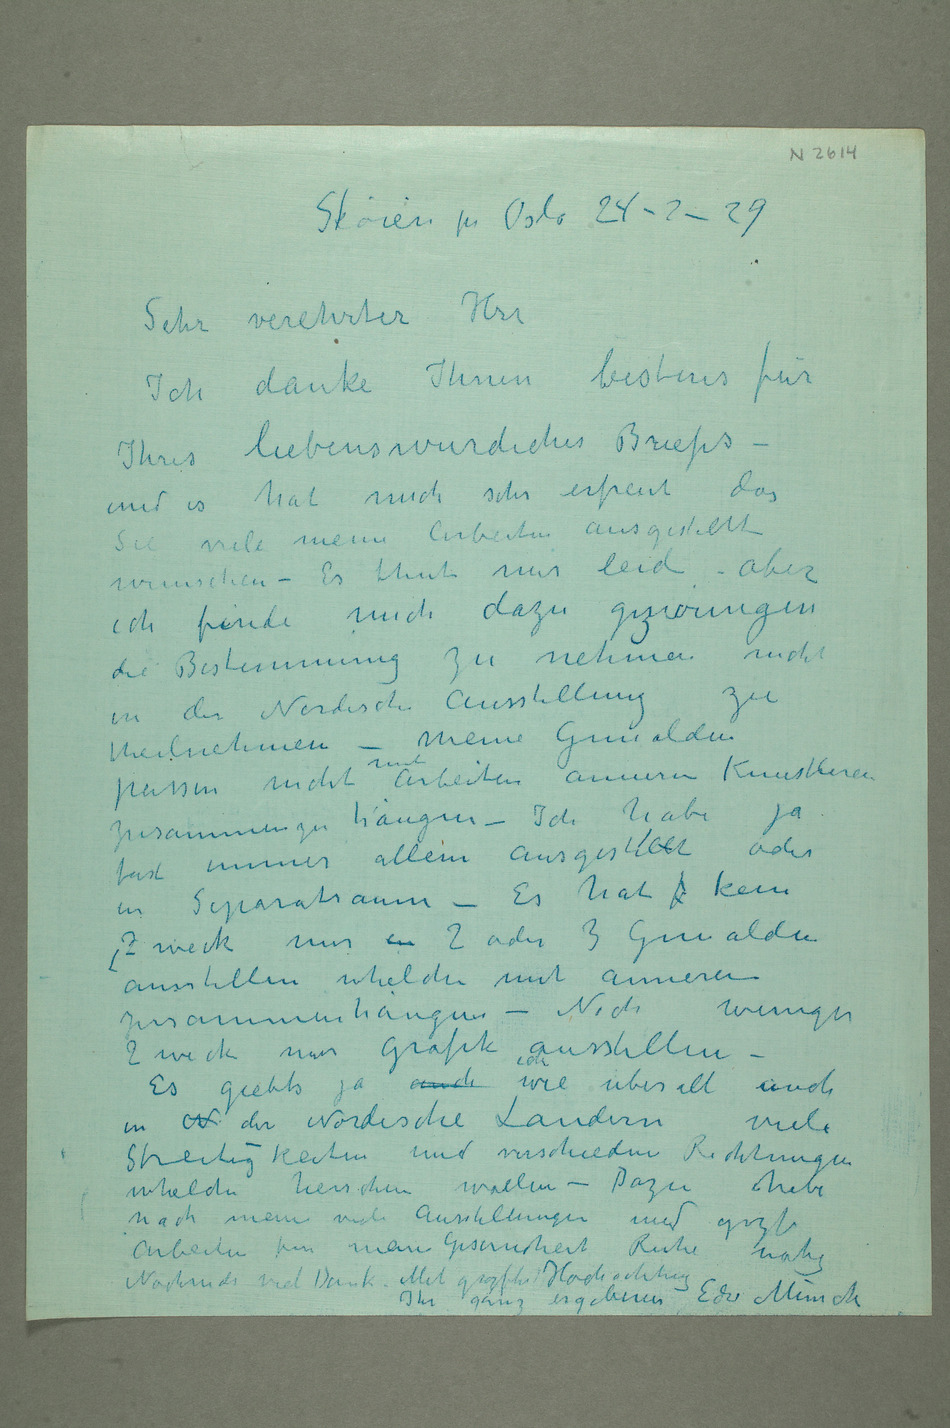 N 2614
Skøien pr Oslo 24–2–29
Sehr verehrter Herr
Ich danke Ihnen bestens für
Ihres liebenswurdiches Briefes –
und es hat mich sehr erfreut das
Sie viele meine Arbeiten ausgestellt
wunschen – Es thut mir leid – aber
ich finde mich dazu gezwungen
die Bestimmung zu nehmen nicht
in der Nordische Ausstellung zu
theilnehmen – meine Gemälden
passen nicht mit Arbeiten anneren Kunstleren
zusammenzuhängen – Ich habe ja
fast immer allein ausgestellt oder
in Separatraum – Es hat kein
Zweck nur 2 oder 3 Gemälden
ausstellen whelche mit anneren
zusammenhängen – Noch weniger
Zweck nur Grafik ausstellen –
Es giebts ja auch wie uberall auch
in der Nordische Landern viele
Streitigkeiten und verschiedene Richtungen
whelche herschen wollen – Dazu habe
nach meine viele Ausstellungen und
Arbeiten fur meine Gesundheit Ruhe nötig
Nochmals viel Dank. Mit Hochachtung
Ihr ganz ergebener Edv Munch